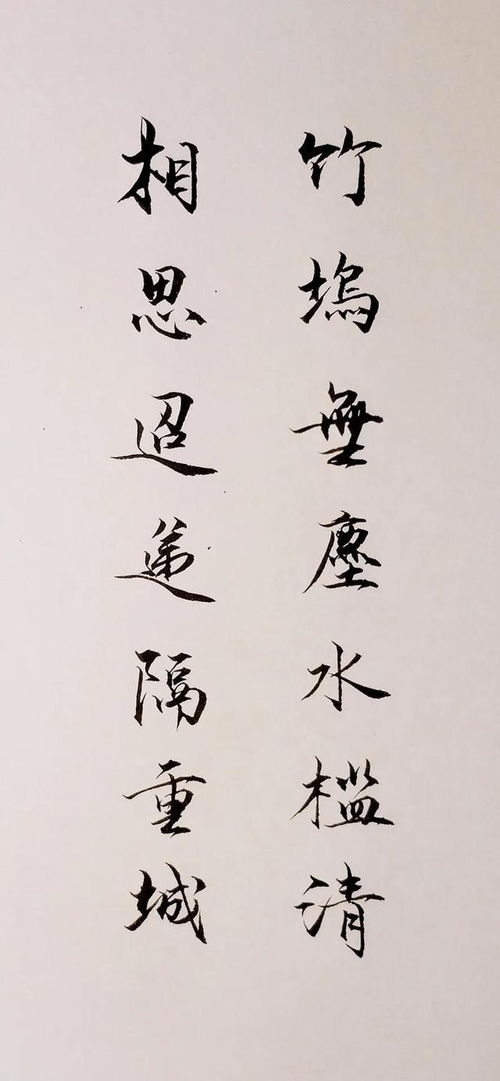 竹塢無塵水檻清
相思迢遞隔重城